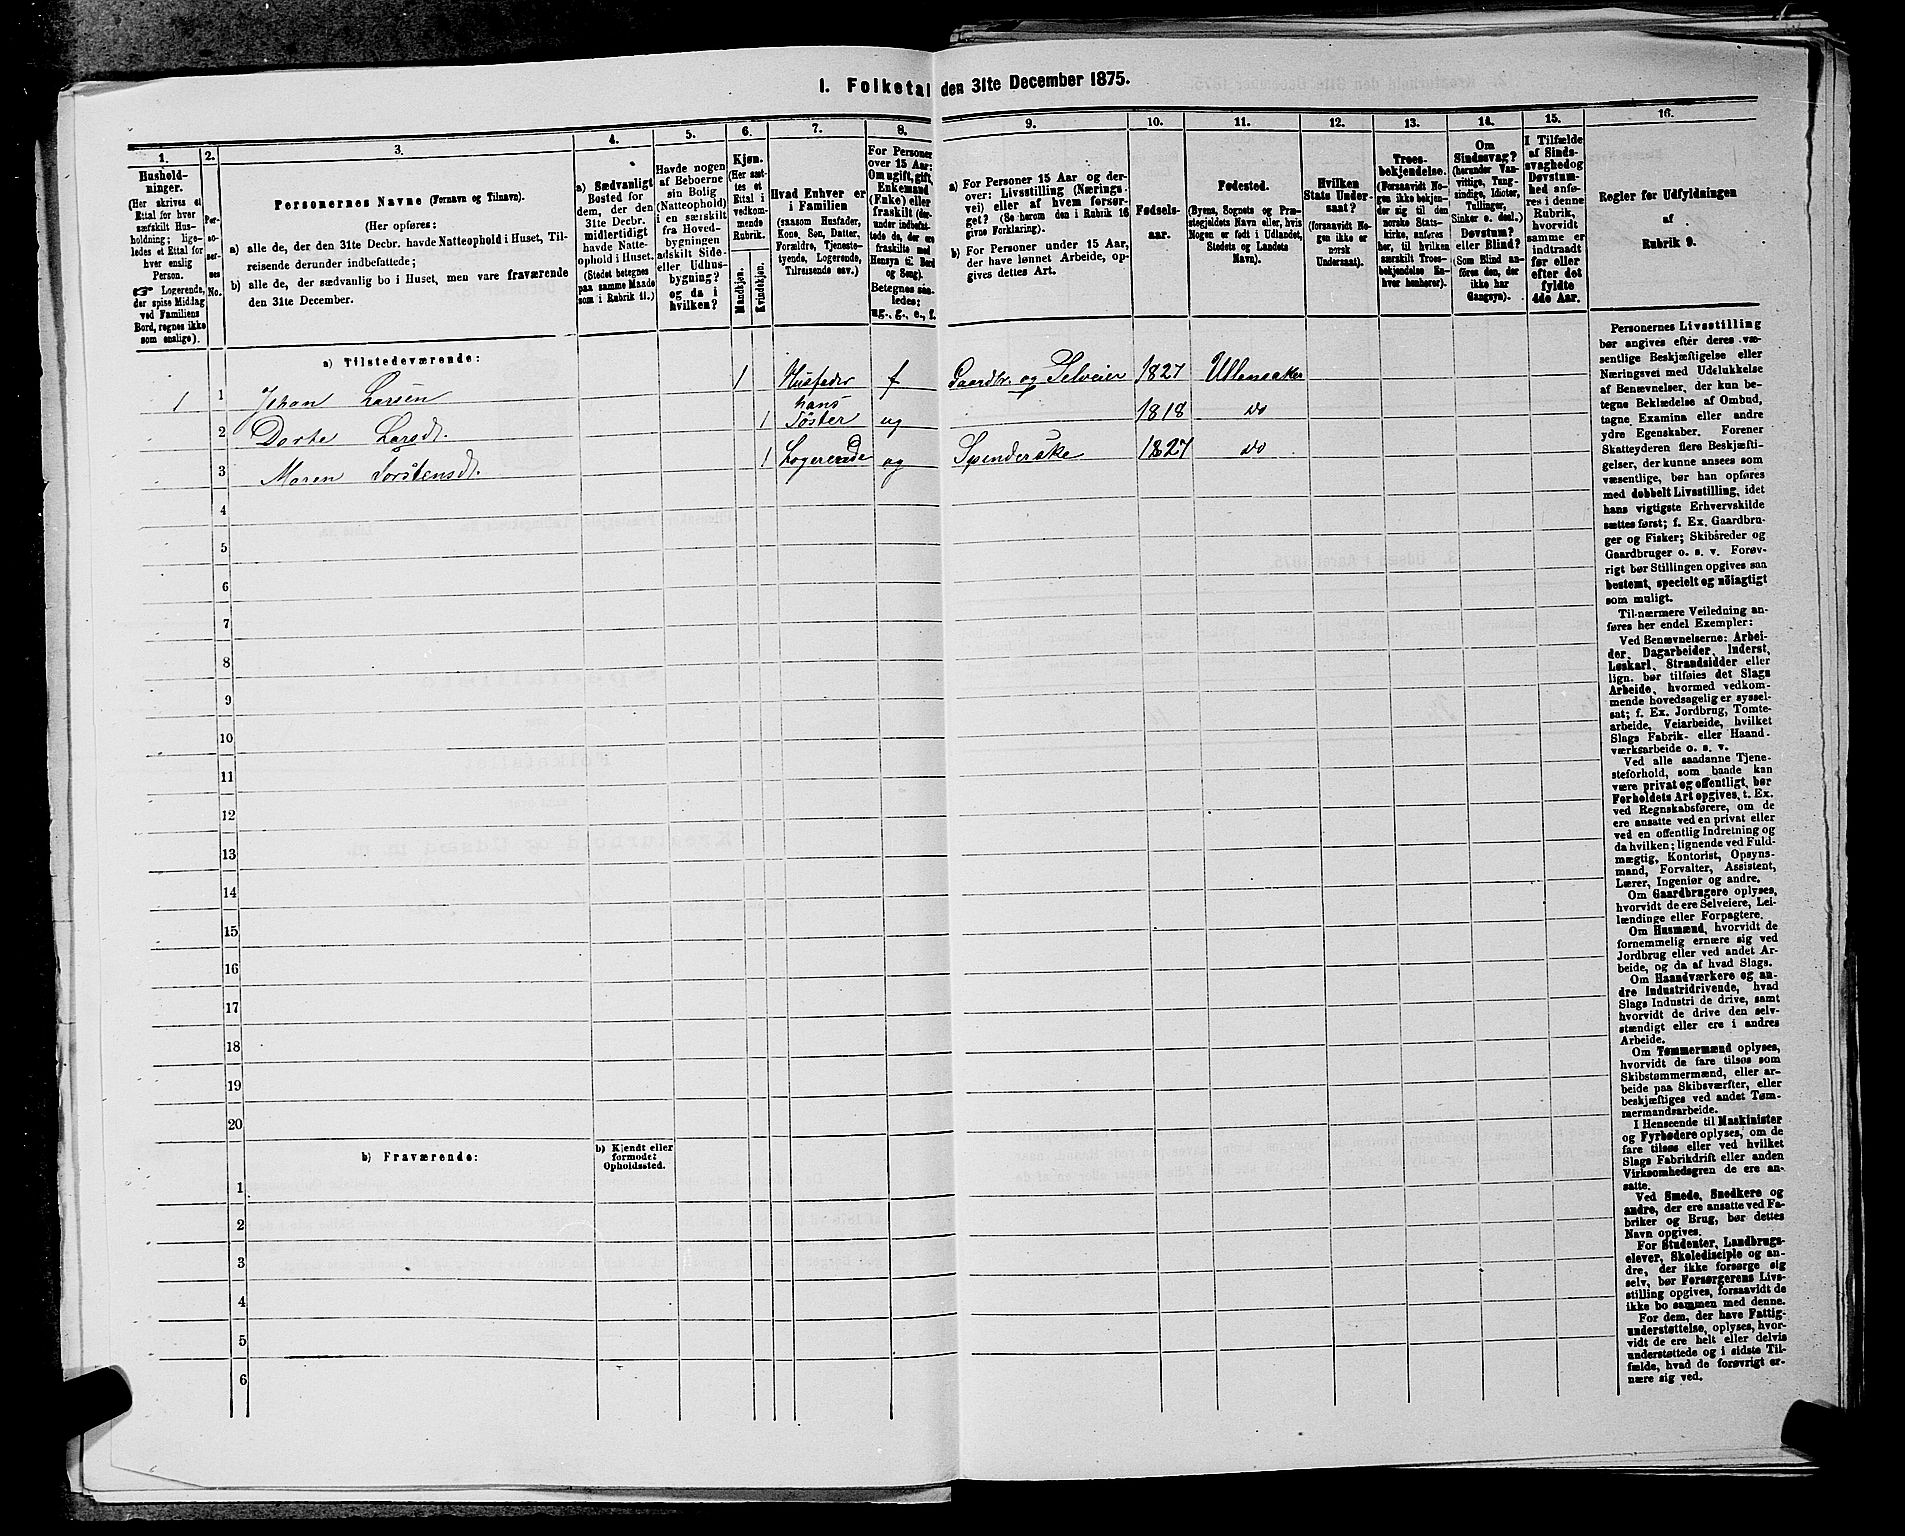 I. Folketal den 31te December 1875.
1.
Hushold-
ninger.
(Her skrives et
Ettal for hver
særskilt Hus-
holdning; lige-
ledes et Ettal for
hver enslig
Person.
☞ Logerende,
der spise Middag
ved Familiens
Bord, regnes ikke
som enslige).
2.
Per-
so-
ner-
nes
No.
3.
Personernes Navne (Fornavn og Tilnavn).
(Her opføres:
a) alle de, der den 31te Decbr. havde Natteophold i Huset, Til-
reisende derunder indbefattede;
b) alle de, der sædvanlig bo i Huset, men vare fraværende
den 31te December.
4.
a) Sædvanligt
Bosted for
dem, der den
31te Decbr.
midlertidigt
havde Natte-
ophold i Huset.
(Stedet betegnes
paa samme Maade
som i Rubrik 11.)
5.
Havde nogen
af Beboerne
sin Bolig
(Natteophold)
i en særskilt
fra Hoved-
bygningen
adskilt Side-
eller Udhus-
bygning?
og da i
hvilken?
6.
Kjøn.
(Her sæt-
tes et
Ettal i
vedkom-
mende
Rubrik.
Mandkjøn.
Kvindekjøn.
7.
Hvad Enhver er
i Familien
(saasom Husfader,
Kone, Søn, Datter,
Forældre, Tjeneste-
tyende, Logerende,
Tilreisende osv.)
8.
For Personer
over 15 Aar:
Om ugift, gift,
Enkemand
(Enke) eller
fraskilt (der-
under indbefat-
tede de, der ere
fraskilte med
Hensyn til Bord
og Seng).
Betegnes saa-
ledes:
ug., g., e., f.
9.
a) For Personer 15 Aar og der-
over: Livsstilling (Nærings-
vei) eller af hvem forsør-
get? (Se herom den i Rubrik 16
givne Forklaring).
b) For Personer under 15 Aar,
der have lønnet Arbeide, op-
gives dettes Art.
10.
Fødsels-
aar.
11.
Fødested.
(Byens, Sognets og Præ-
stegjeldets Navn eller, hvis
Nogen er født i Udlandet,
Stedets og Landets
Navn).
12.
Hvilken
Stats Under-
saat?
(forsaavidt No-
gen ikke er
norsk
Undersaat).
13.
Troes-
bekjendelse.
(Forsaavidt No-
gen ikke bekjen-
der sig til den
norske Stats-
kirke, anføres
her, til hvilken
særskilt Troes-
bekjendelse En-
hver henhører).
14.
Om
Sindssvag?
(herunder Van-
vittige, Tung-
sindige, Idioter,
Tullinger,
Sinker o. desl.)
Døvstum?
eller Blind?
(Som Blind an-
føres den, der
ikke har
Gangsyn).
15.
I Tilfælde
af Sinds-
svaghed og
Døvstum-
hed anfø-
res i denne
Rubrik,
hvorvidt
samme er
indtraadt
før eller
efter det
fyldte
4de Aar.
16.
Regler for Udfyldningen
af
Rubrik 9.
a) Tilstedeværende:
1 1 Johan Larsen 1 Husfader f Gaardbr. og Selveier 1827 Ullensaker
2 Dorte Larsdt. 1 hans Søster ug 1818 do
3 Maren Torstensdt. 1 Logerende ug Spinderske 1827 do
4
5
6
7
8
9
10
11
12
13
14
15
16
17
18
19
20
b) Fraværende:
b) Kjendt eller
formodet
Opholdssted.
1
2
3
4
5
6
Personernes Livsstilling
bør angives efter deres væ-
sentlige Beskjæftigelse eller
Næringsvei med Udelukkelse
af Benævnelser, der kun be-
tegne Beklædelse af Ombud,
tagne Examina eller andre
ydre Egenskaber. Forener
Skatteyderen flere Beskjæfti-
gelser, der kunne ansees som
væsentlige, bør han opføres
med dobbelt Livsstilling, idet
hans vigtigste Erhvervskilde
sættes først; f. Ex. Gaardbru-
ger og Fisker; Skibsreder og
Gaardbruger o. s. v. Forøv-
rigt bør Stillingen opgives saa
bestemt, specielt og nøiagtigt
som muligt.
Til nærmere Veiledning an-
føres her endel Exempler:
Ved Benævnelserne: Arbei-
der, Dagarbeider, Inderst,
Løskarl, Strandsidder eller
lign. bør tilføies det Slags
Arbeide, hvormed vedkom-
mende hovedsagelig er syssel-
sat; f. Ex. Jordbrug, Tomte-
arbeide, Veiarbeide, hvilket
Slags Fabrik- eller Haand-
værksarbeide o. s. v.
Ved alle saadanne Tjene-
steforhold, som baade kan
være privat og offentligt, bør
Forholdets Art opgives, t. Ex.
ved Regnskabsførere, om de
ere ansatte ved en privat eller
ved en offentlig Indretning og
da hvilken; lignende ved Fuld-
mægtig, Kontorist, Opsyns-
mand, Forvalter, Assistent,
Lærer, Ingeniør og andre.
Om Gaardbrugere oplyses,
hvorvidt de ere Selveiere, Lei-
lændinge eller Forpagtere.
Om Husmænd, hvorvidt de
fornemmelig ernære sig ved
Jordbrug eller ved andet Ar-
beide, og da af hvad Slags.
Om Haandværkere og an-
dre Industridrivende, hvad
Slags Industri de drive, samt
hvorvidt de drive den selv-
stændigt eller ere i andres
Arbeide.
Om Tømmermænd oplyses,
hvorvidt de fare tilsøs som
Skibstømmermænd, eller ar-
beide paa Skibsværfter, eller
beskjæftiges ved andet Tøm-
mermandsarbeide.
I Henseende til Maskinister
og Fyrbødere oplyses, om de
fare tilsøs eller ved hvilket
Slags Fabrikdrift eller anden
Virksomhedsgren de ere an-
satte.
Ved Smede, Snedkere og
andre, der ere ansatte ved Fa-
briker og Brug, bør dettes
Navn opgives.
For Studenter, Landbrugs-
elever, Skoledisciple og an-
dre, der ikke forsørge sig
selv, bør Forsørgerens Livs-
stilling opgives, forsaavidt de
ikke bo sammen med denne.
For dem, der have Fattig-
understøttelse, oplyses, hvor-
vidt de ere helt eller delvis
understøttede og i sidste Til-
fælde, hvad de forøvrigt er-
nære sig ved.